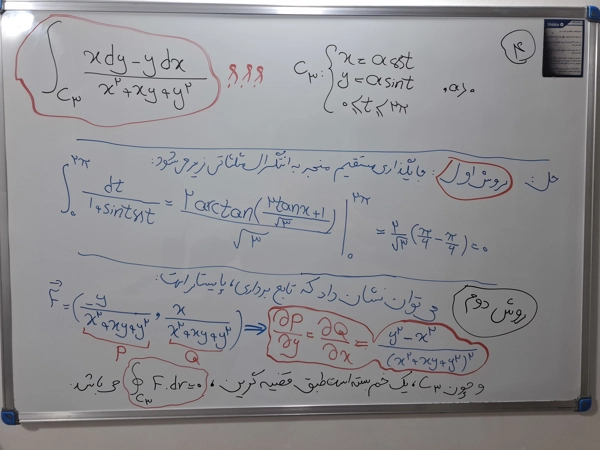 ∫_{C₃} (xdy - ydx)/(x² + xy + y²) ؟؟؟ C₃: { x = a cos t , y = a sin t , ۰ ≤ t ≤ ۲π } , a > ۰
حل: روش اول: جایگذاری مستقیم منجر به انتگرال مثلثاتی زیر می‌شود:
∫_۰^{۲π} dt/(1 + sint cost) = ۲ arctan((۲tanx + 1)/√۳)/√۳ |_۰^{۲π} = ۲/√۳ (π/۶ - π/۶) = ۰
روش دوم می‌توان نشان داد که تابع برداری، پایستار است:
F⃗ = (-y/(x² + xy + y²) , x/(x² + xy + y²)) ⇒ ∂P/∂y = ∂Q/∂x = (y² - x²)/(x² + xy + y²)²
P Q
و چون C₃، یک خم بسته است طبق قضیه گرین، ∮_{C₃} F.dr = ۰ می باشد.